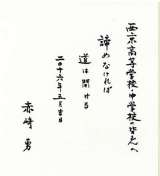 西京高等学校・中学校の皆さんへ
諦めなければ
道は開ける
二〇十六年三月吉日
赤﨑 勇